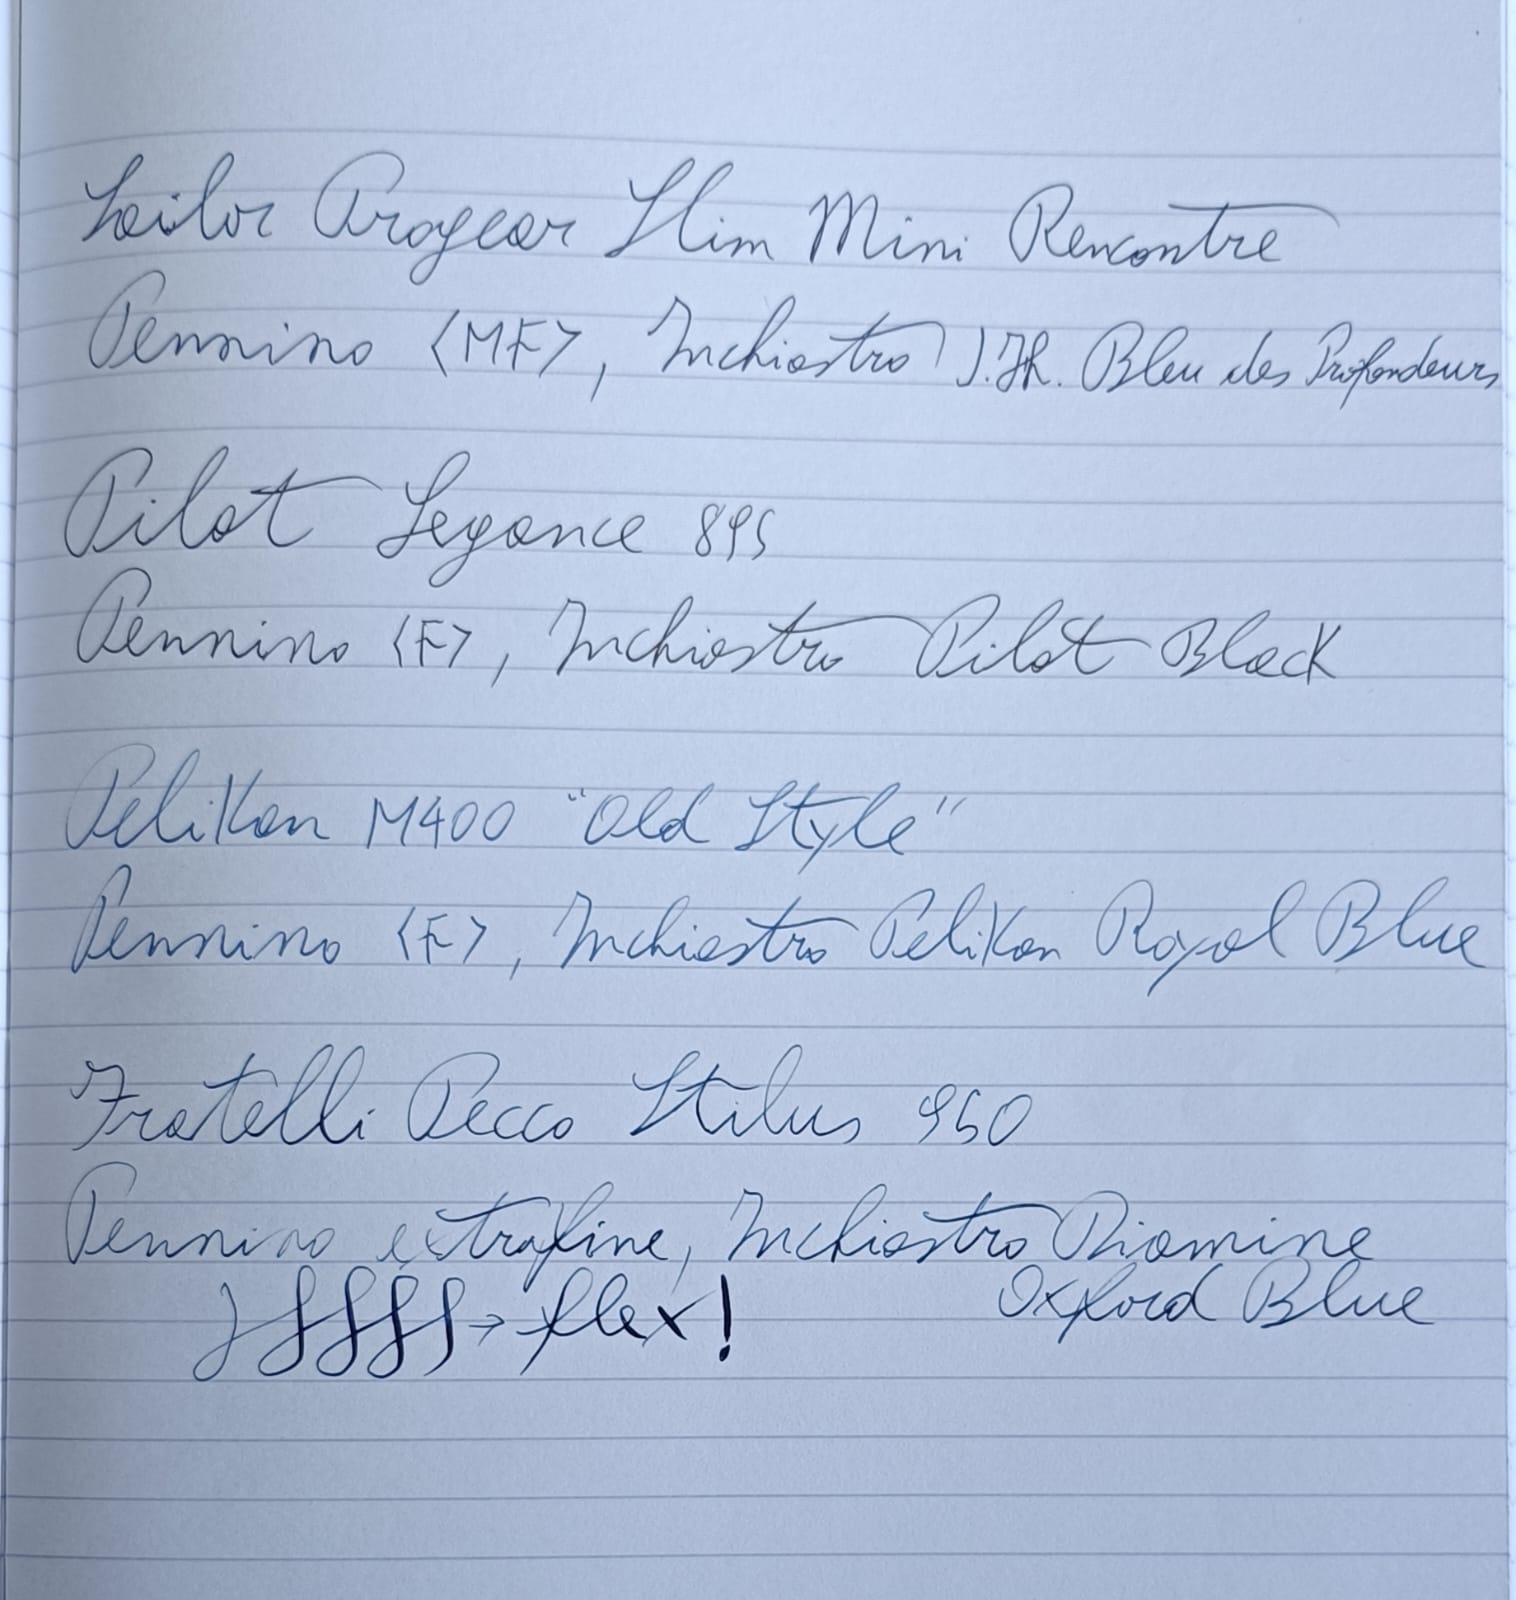 Sailor Progear Slim Mini Rencontre
Pennino <MF>, Inchiostro J.H. Bleu des Profondeurs
Pilot Legance 89s
Pennino <F>, Inchiostro Pilot Black
Pelikan M400 "Old Style"
Pennino <F>, Inchiostro Pelikan Royal Blue
Fratelli Pecco Stilus 950
Pennino extrafine, Inchiostro Diamine
Oxford Blue
→ flex!